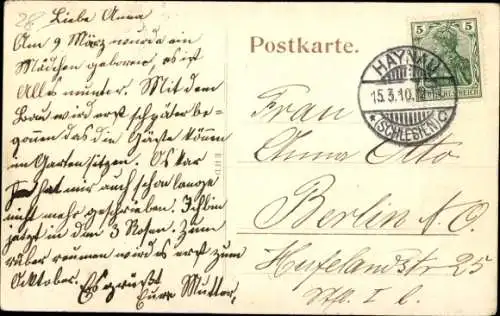 28.
Liebe Anna
Am 9 März wurde ein
Mädchen geboren, es ist
Alles munter. Mit dem
Bau wird erst schpäter be-
gonnen das die Gäste können
im Garten sitzen. Oskar
hat mir auch schon lange
nicht mehr geschrieben. Ich bin
jetzt in den 3 Rosen. Zum
räber rennen wird es erst zum
Ocktober. Es grüßt
Eure Mutter,
Postkarte.
5 5
DEUTSCHES REICH
HAYNAU
15.3.10.
* (SCHLESIEN) C
Frau
Anna Otto
Berlin N. O.
Hufelandstr 25
I